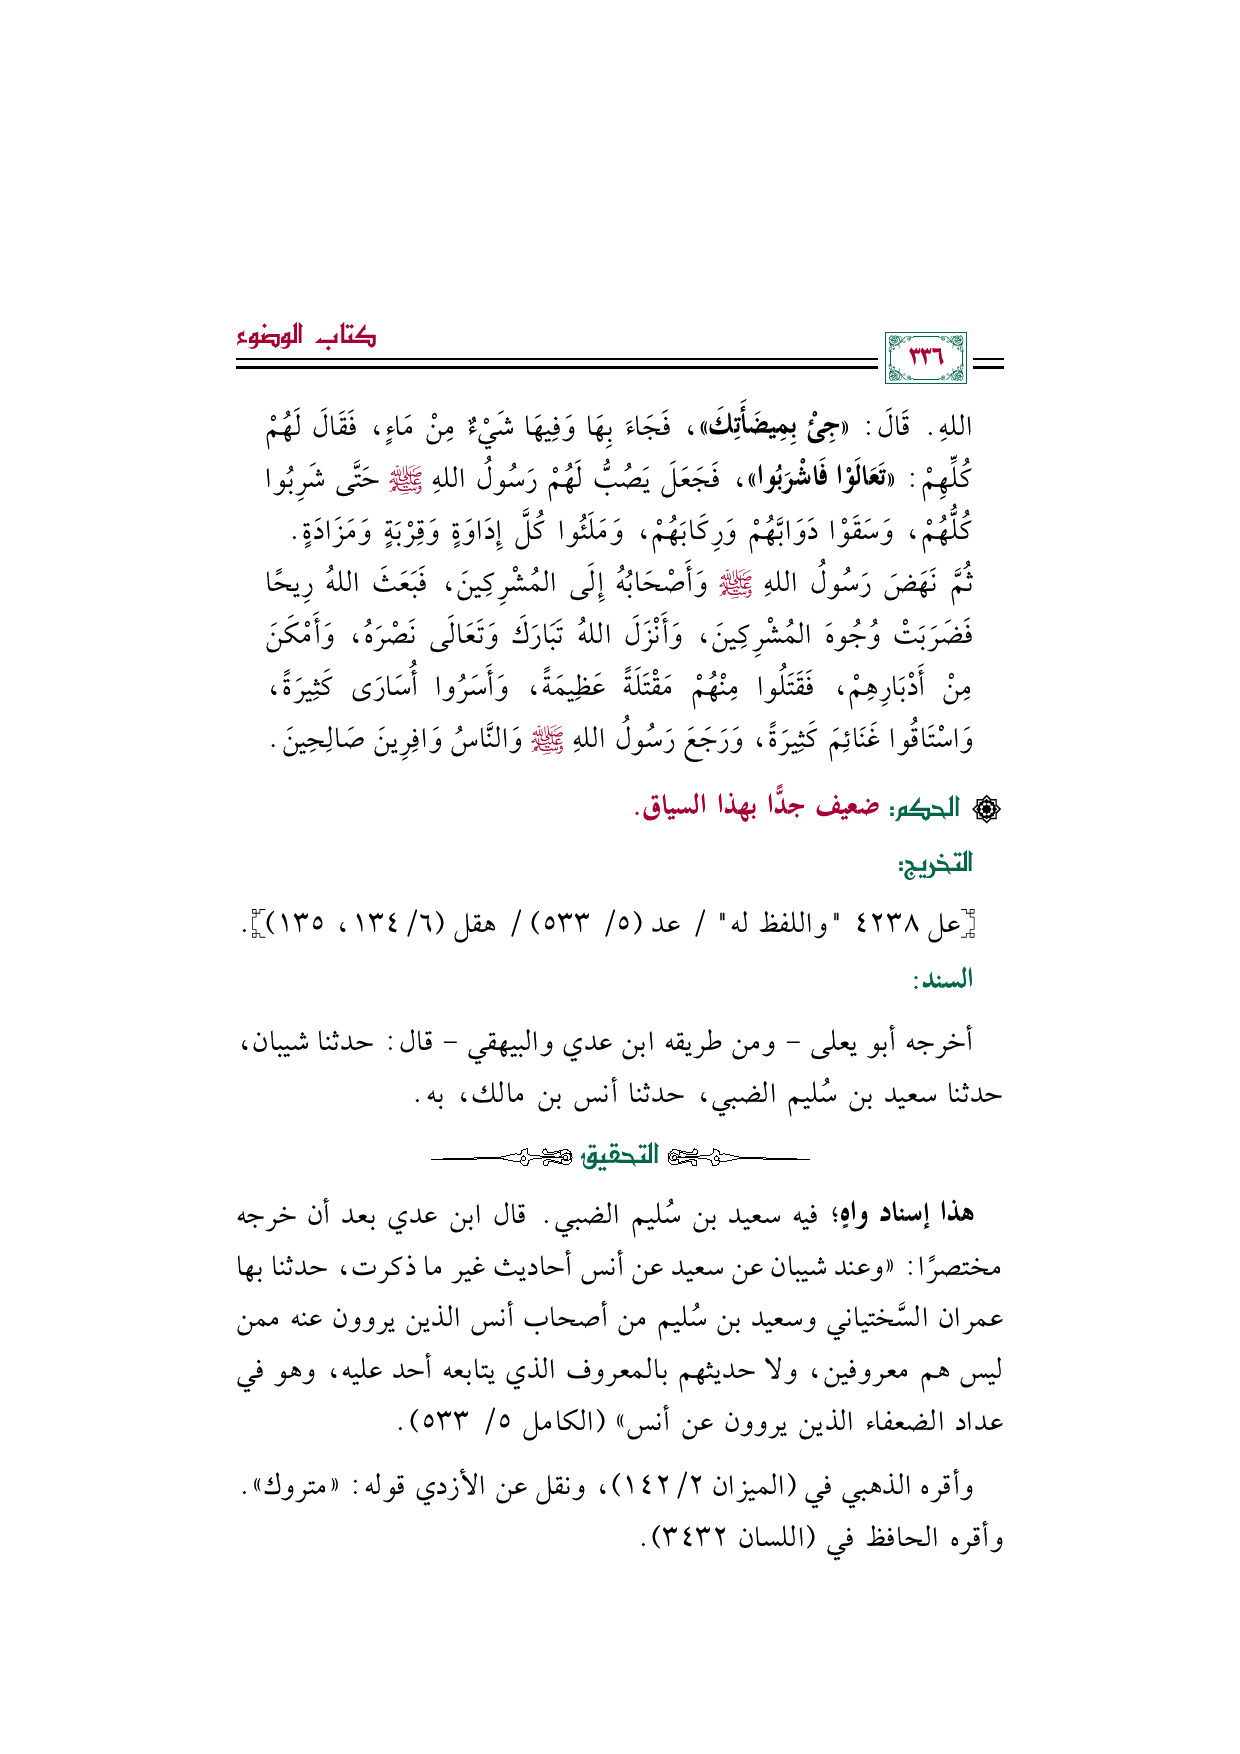 كتاب الوضوء
٣٣٦
اللهِ. قَالَ: «جِئْ بِمِيضَأَتِكَ»، فَجَاءَ بِهَا وَفِيهَا شَيْءٌ مِنْ مَاءٍ، فَقَالَ لَهُمْ
كُلِّهِمْ: «تَعَالَوْا فَاشْرَبُوا»، فَجَعَلَ يَصُبُّ لَهُمْ رَسُولُ اللهِ ﷺ حَتَّى شَرِبُوا
كُلُّهُمْ، وَسَقَوْا دَوَابَّهُمْ وَرِكَابَهُمْ، وَمَلَئُوا كُلَّ إِدَاوَةٍ وَقِرْبَةٍ وَمَزَادَةٍ.
ثُمَّ نَهَضَ رَسُولُ اللهِ ﷺ وَأَصْحَابُهُ إِلَى المُشْرِكِينَ، فَبَعَثَ اللهُ رِيحًا
فَضَرَبَتْ وُجُوهَ المُشْرِكِينَ، وَأَنْزَلَ اللهُ تَبَارَكَ وَتَعَالَى نَصْرَهُ، وَأَمْكَنَ
مِنْ أَدْبَارِهِمْ، فَقَتَلُوا مِنْهُمْ مَقْتَلَةً عَظِيمَةً، وَأَسَرُوا أُسَارَى كَثِيرَةً،
وَاسْتَاقُوا غَنَائِمَ كَثِيرَةً، وَرَجَعَ رَسُولُ اللهِ ﷺ وَالنَّاسُ وَافِرِينَ صَالِحِينَ.
الحكم: ضعيف جدًّا بهذا السياق.
التخريج:
[عل ٤٢٣٨ "واللفظ له" / عد (٥/ ٥٣٣) / هقل (٦/ ١٣٤، ١٣٥)].
السند:
أخرجه أبو يعلى – ومن طريقه ابن عدي والبيهقي – قال: حدثنا شيبان،
حدثنا سعيد بن سُليم الضبي، حدثنا أنس بن مالك، به.
التحقيق
هذا إسناد واهٍ؛ فيه سعيد بن سُليم الضبي. قال ابن عدي بعد أن خرجه
مختصرًا: «وعند شيبان عن سعيد عن أنس أحاديث غير ما ذكرت، حدثنا بها
عمران السَّختياني وسعيد بن سُليم من أصحاب أنس الذين يروون عنه ممن
ليس هم معروفين، ولا حديثهم بالمعروف الذي يتابعه أحد عليه، وهو في
عداد الضعفاء الذين يروون عن أنس» (الكامل ٥/ ٥٣٣).
وأقره الذهبي في (الميزان ٢/ ١٤٢)، ونقل عن الأزدي قوله: «متروك».
وأقره الحافظ في (اللسان ٣٤٣٢).